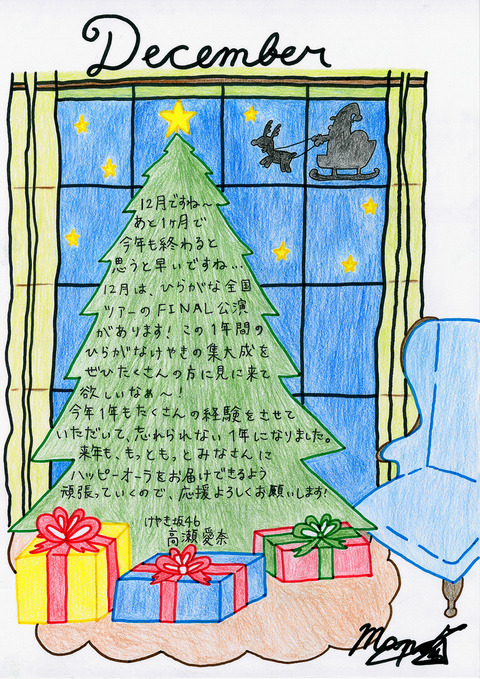 December
12月ですね〜
あと1ヶ月で
今年も終わると
思うと早いですね…
12月は、ひらがな全国
ツアーのFINAL公演
があります！この1年間の
ひらがなけやきの集大成を
ぜひたくさんの方に見に来て
欲しいなぁ〜！
今年1年もたくさんの経験をさせて
いただいて、忘れられない1年になりました。
来年も、もっともっとみなさんに
ハッピーオーラをお届けできるよう
頑張っていくので、応援よろしくお願いします！
けやき坂46
高瀬愛奈